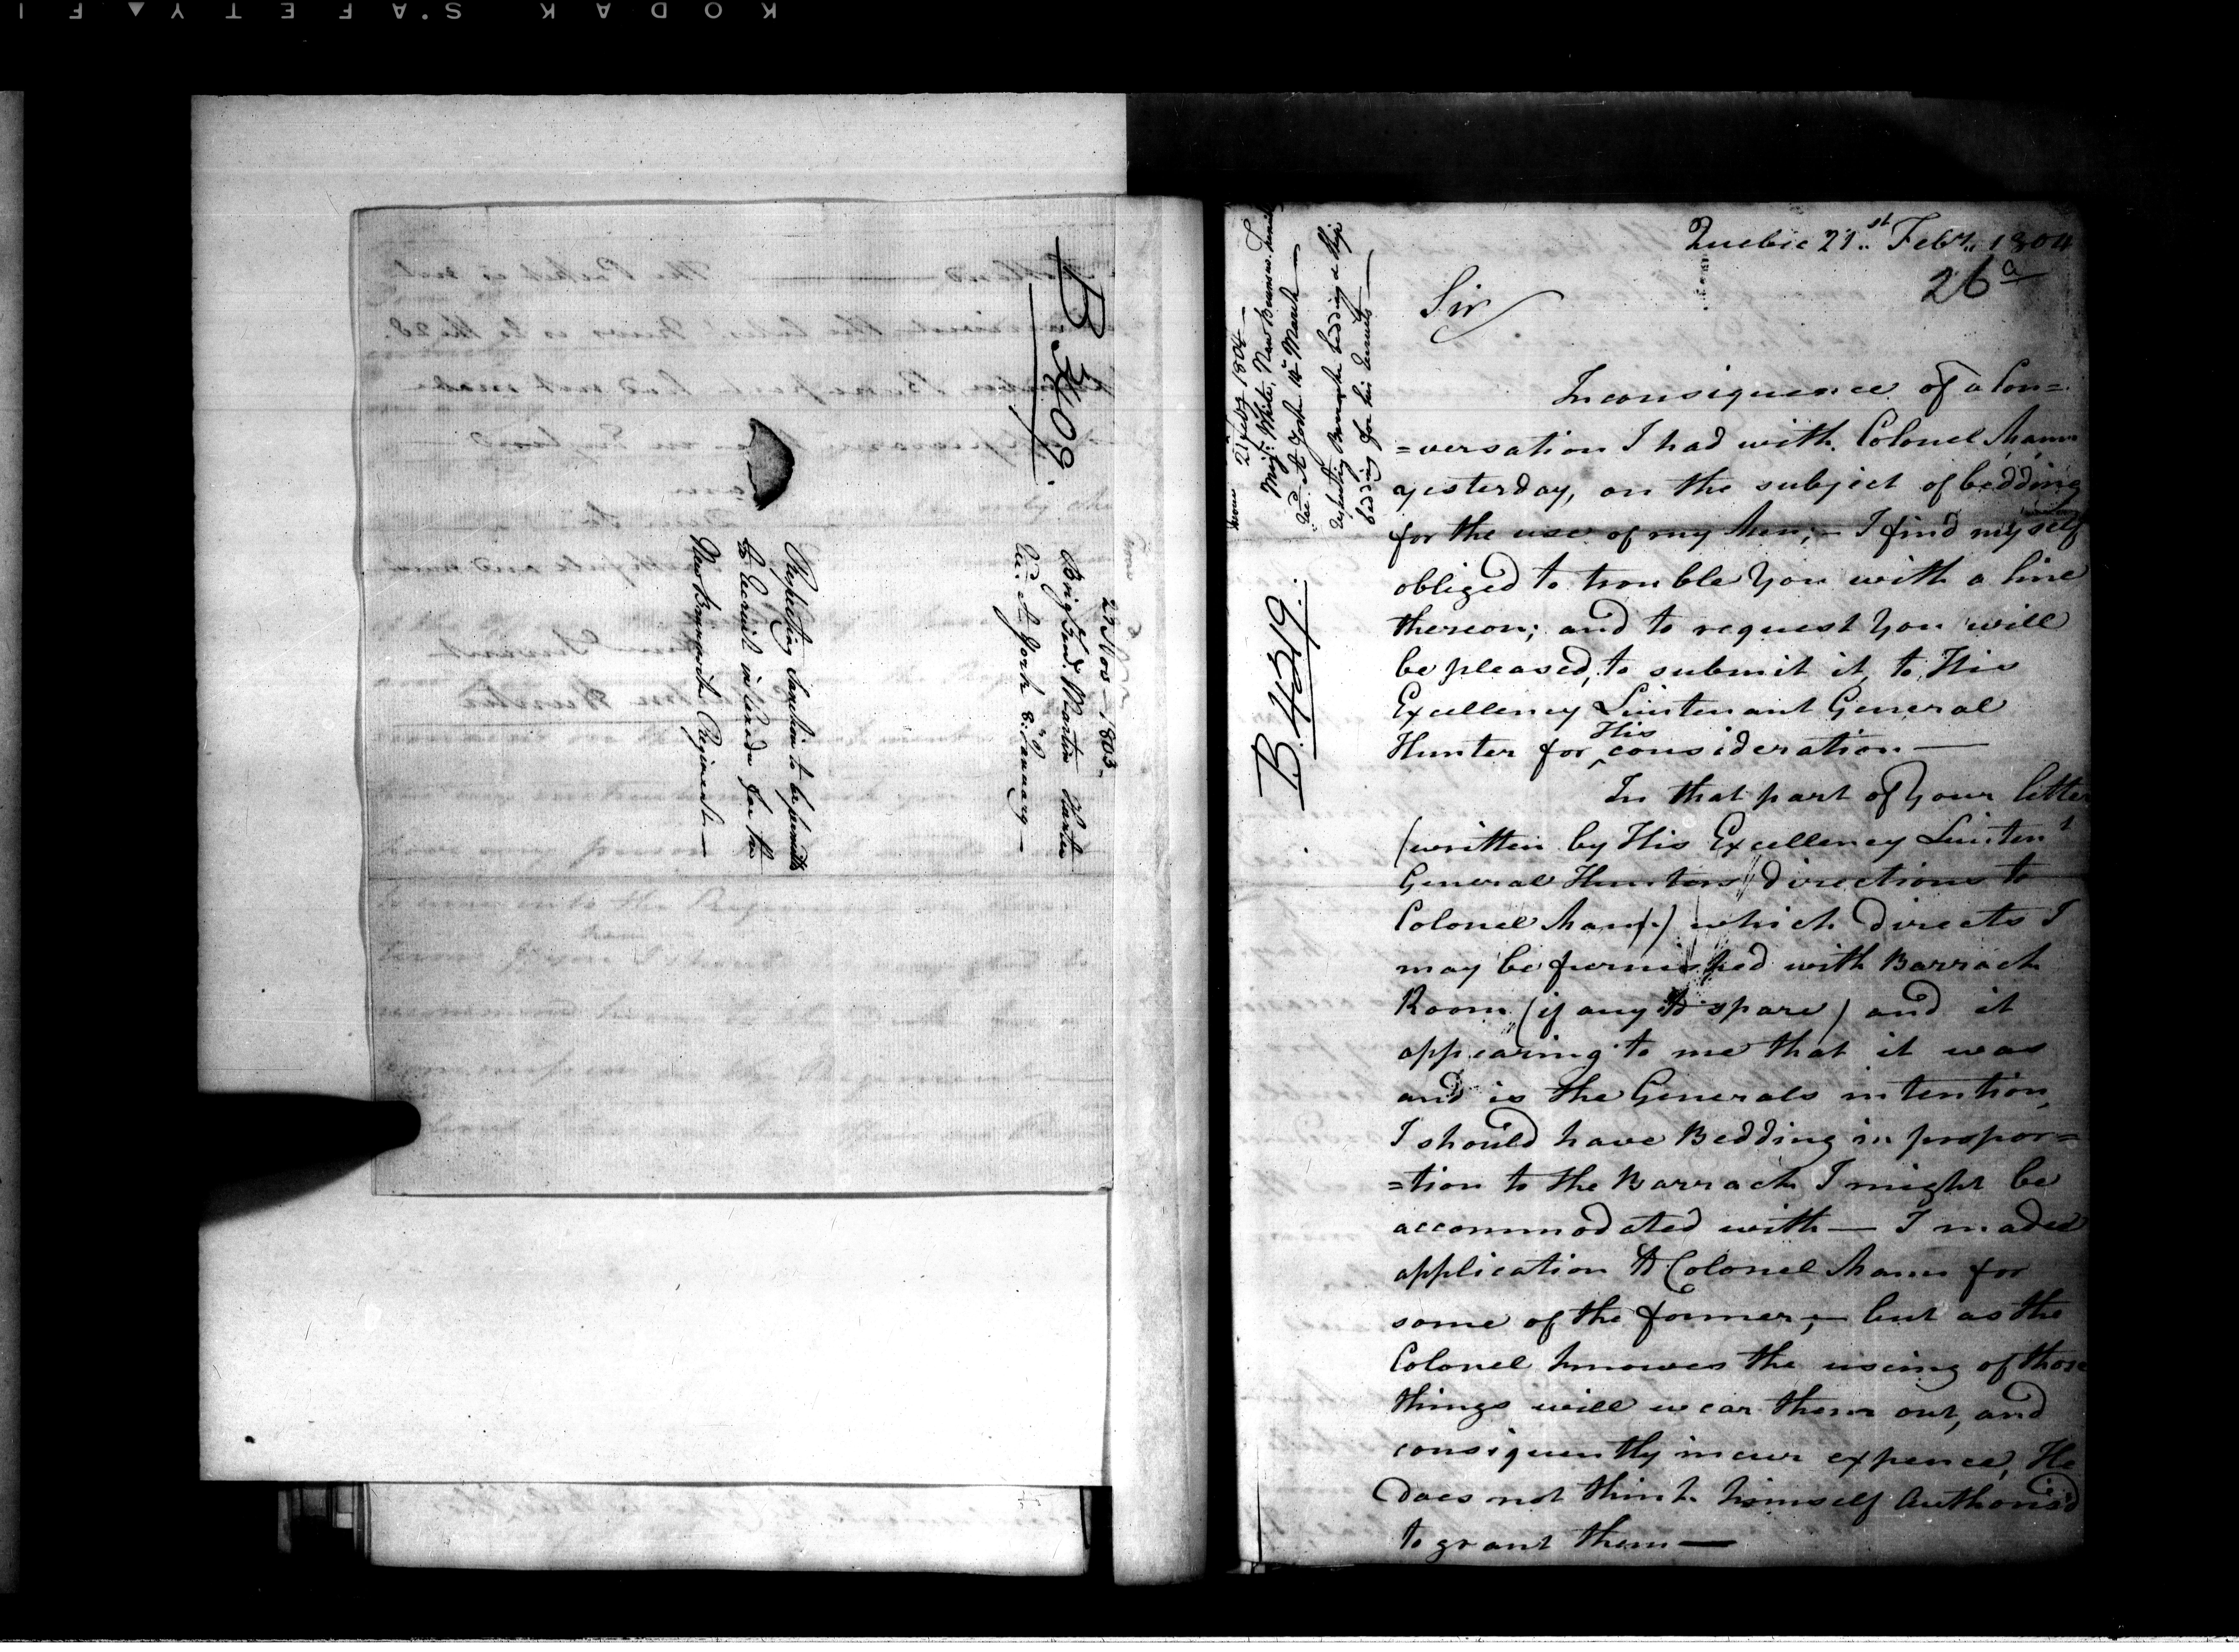 KODAK SAFETY FI
B 3409.
27 Nov. 1803.
Brig. Genl. Martin Hunter
Rec. at York 8th January —
Respecting Sanction to be permitted
to Recruit in Canada for the
New Brunswick Regiment —
Quebec 21st.. Feby.. 1804
26 a
Sir
In consiquence of a Con=
=versation I had with Colonel Mann
yesterday, on the subject of bedding
for the use of my Men, — I find myself
obliged to trouble You with a line
thereon; and to request You will
be pleased, to submit it, to His
Excellency Luintenant General
Hunter for His consideration —
In that part of Your letter
(written by His Excellency Luintent
General Hunters directions to
Colonel Mann) which directs I
may be furnished with Barrack
Room (if any to spare) and it
appearing to me that it was
and is the Generals intention,
I should have Bedding in propor=
=tion to the Barrack I might be
accommodated with — I maded
application to Colonel Mann for
some of the former, — but as the
Colonel knowes the useing of those
things will wear them out, and
consiquently incur expence, He
Does not think himself Authoris'd
to grant them —
21 Feby 1804 —
Majr. White, New Brunswick
Rec. at York 14th March —
respecting Barrack bedding & Ship
bedding for his recruits —
B. 4319.